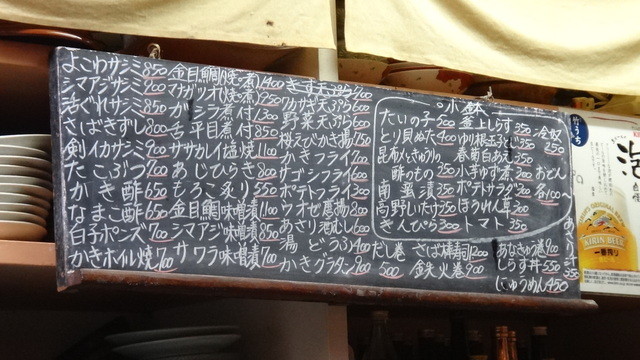 よこわサシミ 850
シマアジサシミ 900
活ぐれサシミ 850
さばきずし 800
剣イカサシミ 900
たこぶつ 700
かき酢 650
なまこ酢 650
白子ポンズ 700
かきホイル焼 700
金目鯛(焼・煮) 1400
マナガツオ(焼・煮)
ガシラ煮付 1300
舌平目煮付 850
ササカレイ塩焼 1100
あじひらき 800
もろこ炙り 550
金目鯛味噌漬 1100
シマアジ味噌漬 850
サワラ味噌漬 700
きす天ぷら
ワカサギ天ぷら 600
野菜天ぷら 600
桜えびかき揚 750
かきフライ
サゴシフライ 600
ポテトフライ
ウオゼ唐揚
あさり酒むし
湯どうふ 400
かきグラタン 900
小鉢
たいの子 500
とり貝ぬた 400
昆布〆きゅうりの
酢のもの 350
南蛮漬 350
高野しいたけ 350
きんぴら 300
釜上しらす 350
ゆり根玉子とじ 350
春菊白あえ 350
小芋ゆず煮 300
ポテトサラダ
ほうれん草
トマト 350
冷奴 250
おでん
各100〜
だし巻 500
さば棒寿司 1200
鉄火巻 900
あなきゅう巻 900
しらす丼 550
にゅうめん 450
あさり汁 350
KIRIN BEER
一番搾り